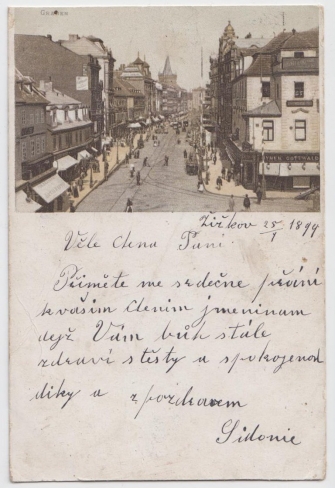 GRABEN
Žižkov 25/I 1899
Vele ctěna Paní
Přiměte me srdečne přání
k vašim ctenim jmeninam
dejž Vám bůh stále
zdraví stěsty a spokojenost
díky a z pozdravem
Sidonie